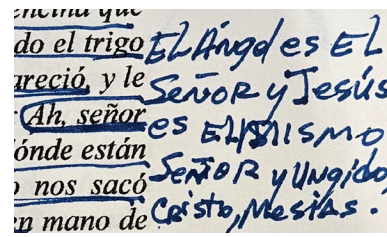 encina que
do el trigo
areció, y le
Ah, señor
ónde están
o nos sacó
en mano de
EL Ángel es EL
SEÑOR y Jesús
es EL MISMO
SEÑOR y UNgido
CRisto, MesíAs.